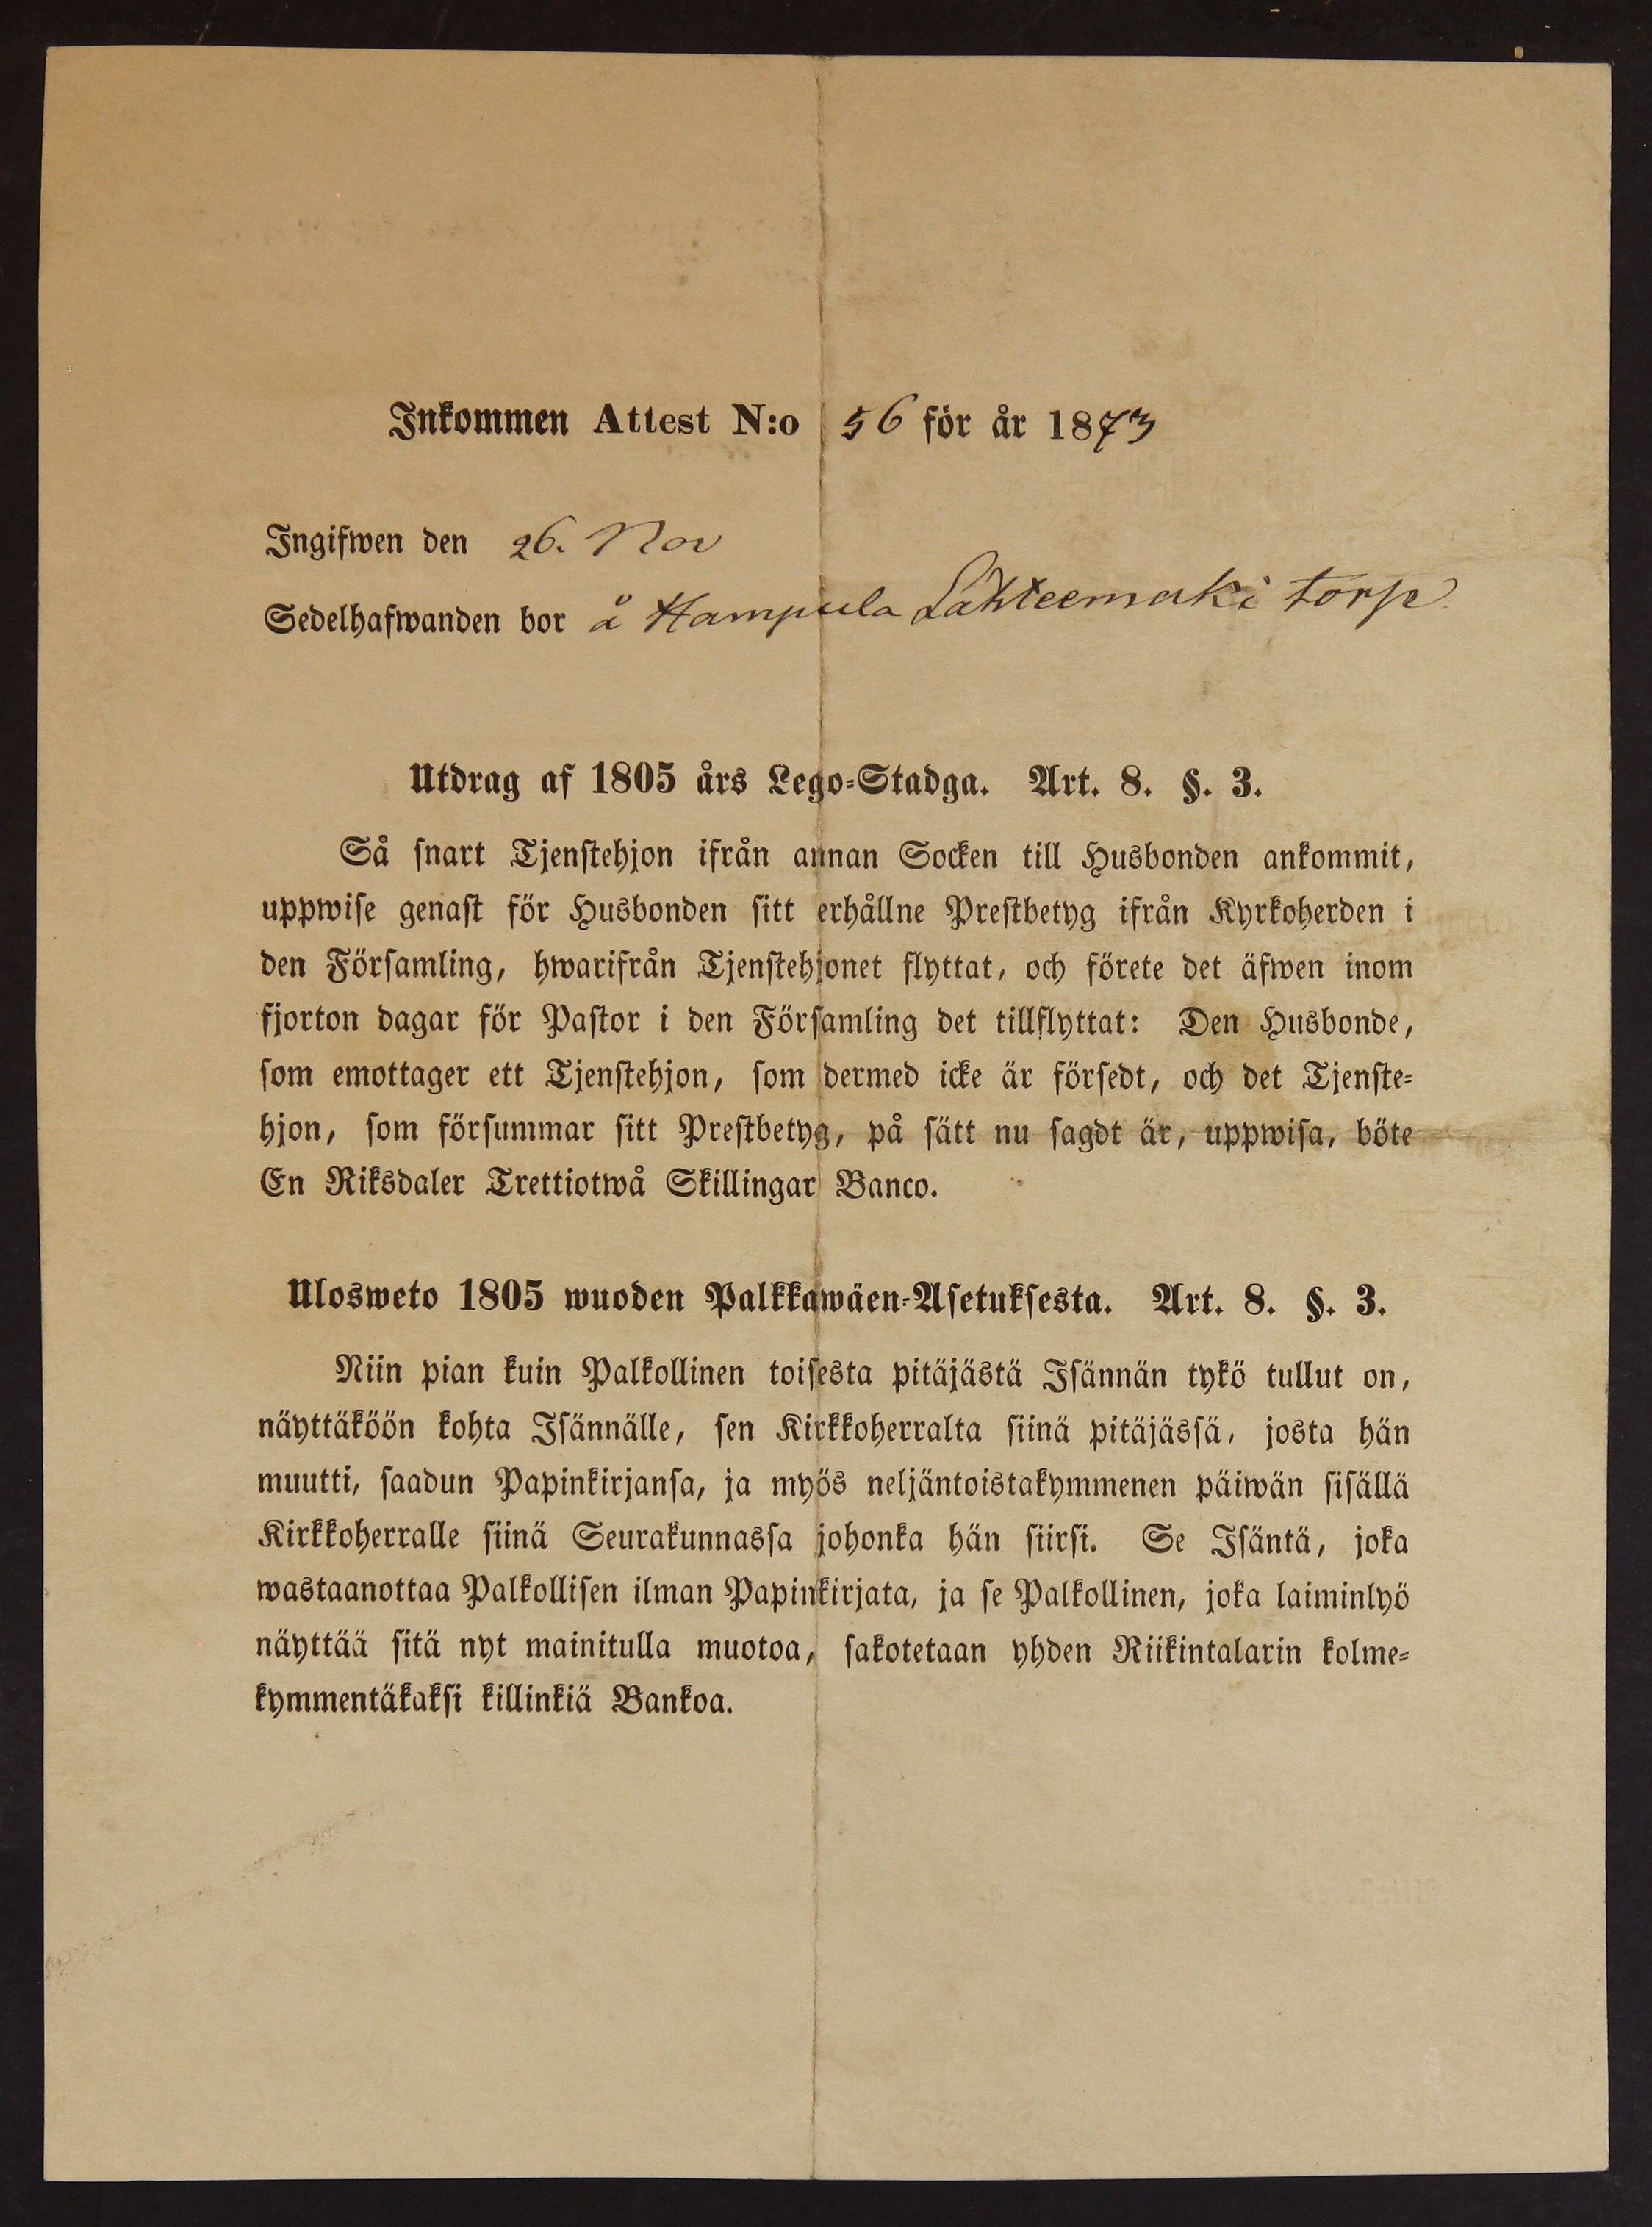 Inkommen Attest N:o 56 för år 1873
Ingifwen den 26. Nov
Sedelhafwanden bor å Hampula Lähteemäki torp
Utdrag af 1805 års Lego-Stadga. Art. 8. §. 3.
Så snart Tjenstehjon ifrån annan Socken till Husbonden ankommit,
uppwise genast för Husbonden sitt erhållne Prestbetyg ifrån Kyrkoherden i
den Församling, hwarifrån Tjenstehjonet flyttat, och förete det äfwen inom
fjorton dagar för Pastor i den Församling det tillflyttat: Den Husbonde,
som emottager ett Tjenstehjon, som dermed icke är försedt, och det Tjenste-
hjon, som försummar sitt Prestbetyg, på sätt nu sagdt är, uppwisa, böte
En Riksdaler Trettiotwå Skillingar Banco.
Ulosweto 1805 wuoden Palkkawäen-Asetuksesta. Art. 8. §. 3.
Niin pian kuin Palkollinen toisesta pitäjästä Isännän tykö tullut on,
näyttäköön kohta Isännälle, sen Kirkkoherralta siinä pitäjässä, josta hän
muutti, saadun Papinkirjansa, ja myös neljäntoistakymmenen päiwän sisällä
Kirkkoherralle siinä Seurakunnassa johonka hän siirsi. Se Isäntä, joka
wastaanottaa Palkollisen ilman Papinkirjata, ja se Palkollinen, joka laiminlyö
näyttää sitä nyt mainitulla muotoa, sakotetaan yhden Riikintalarin kolme-
kymmentäkaksi killinkiä Bankoa.